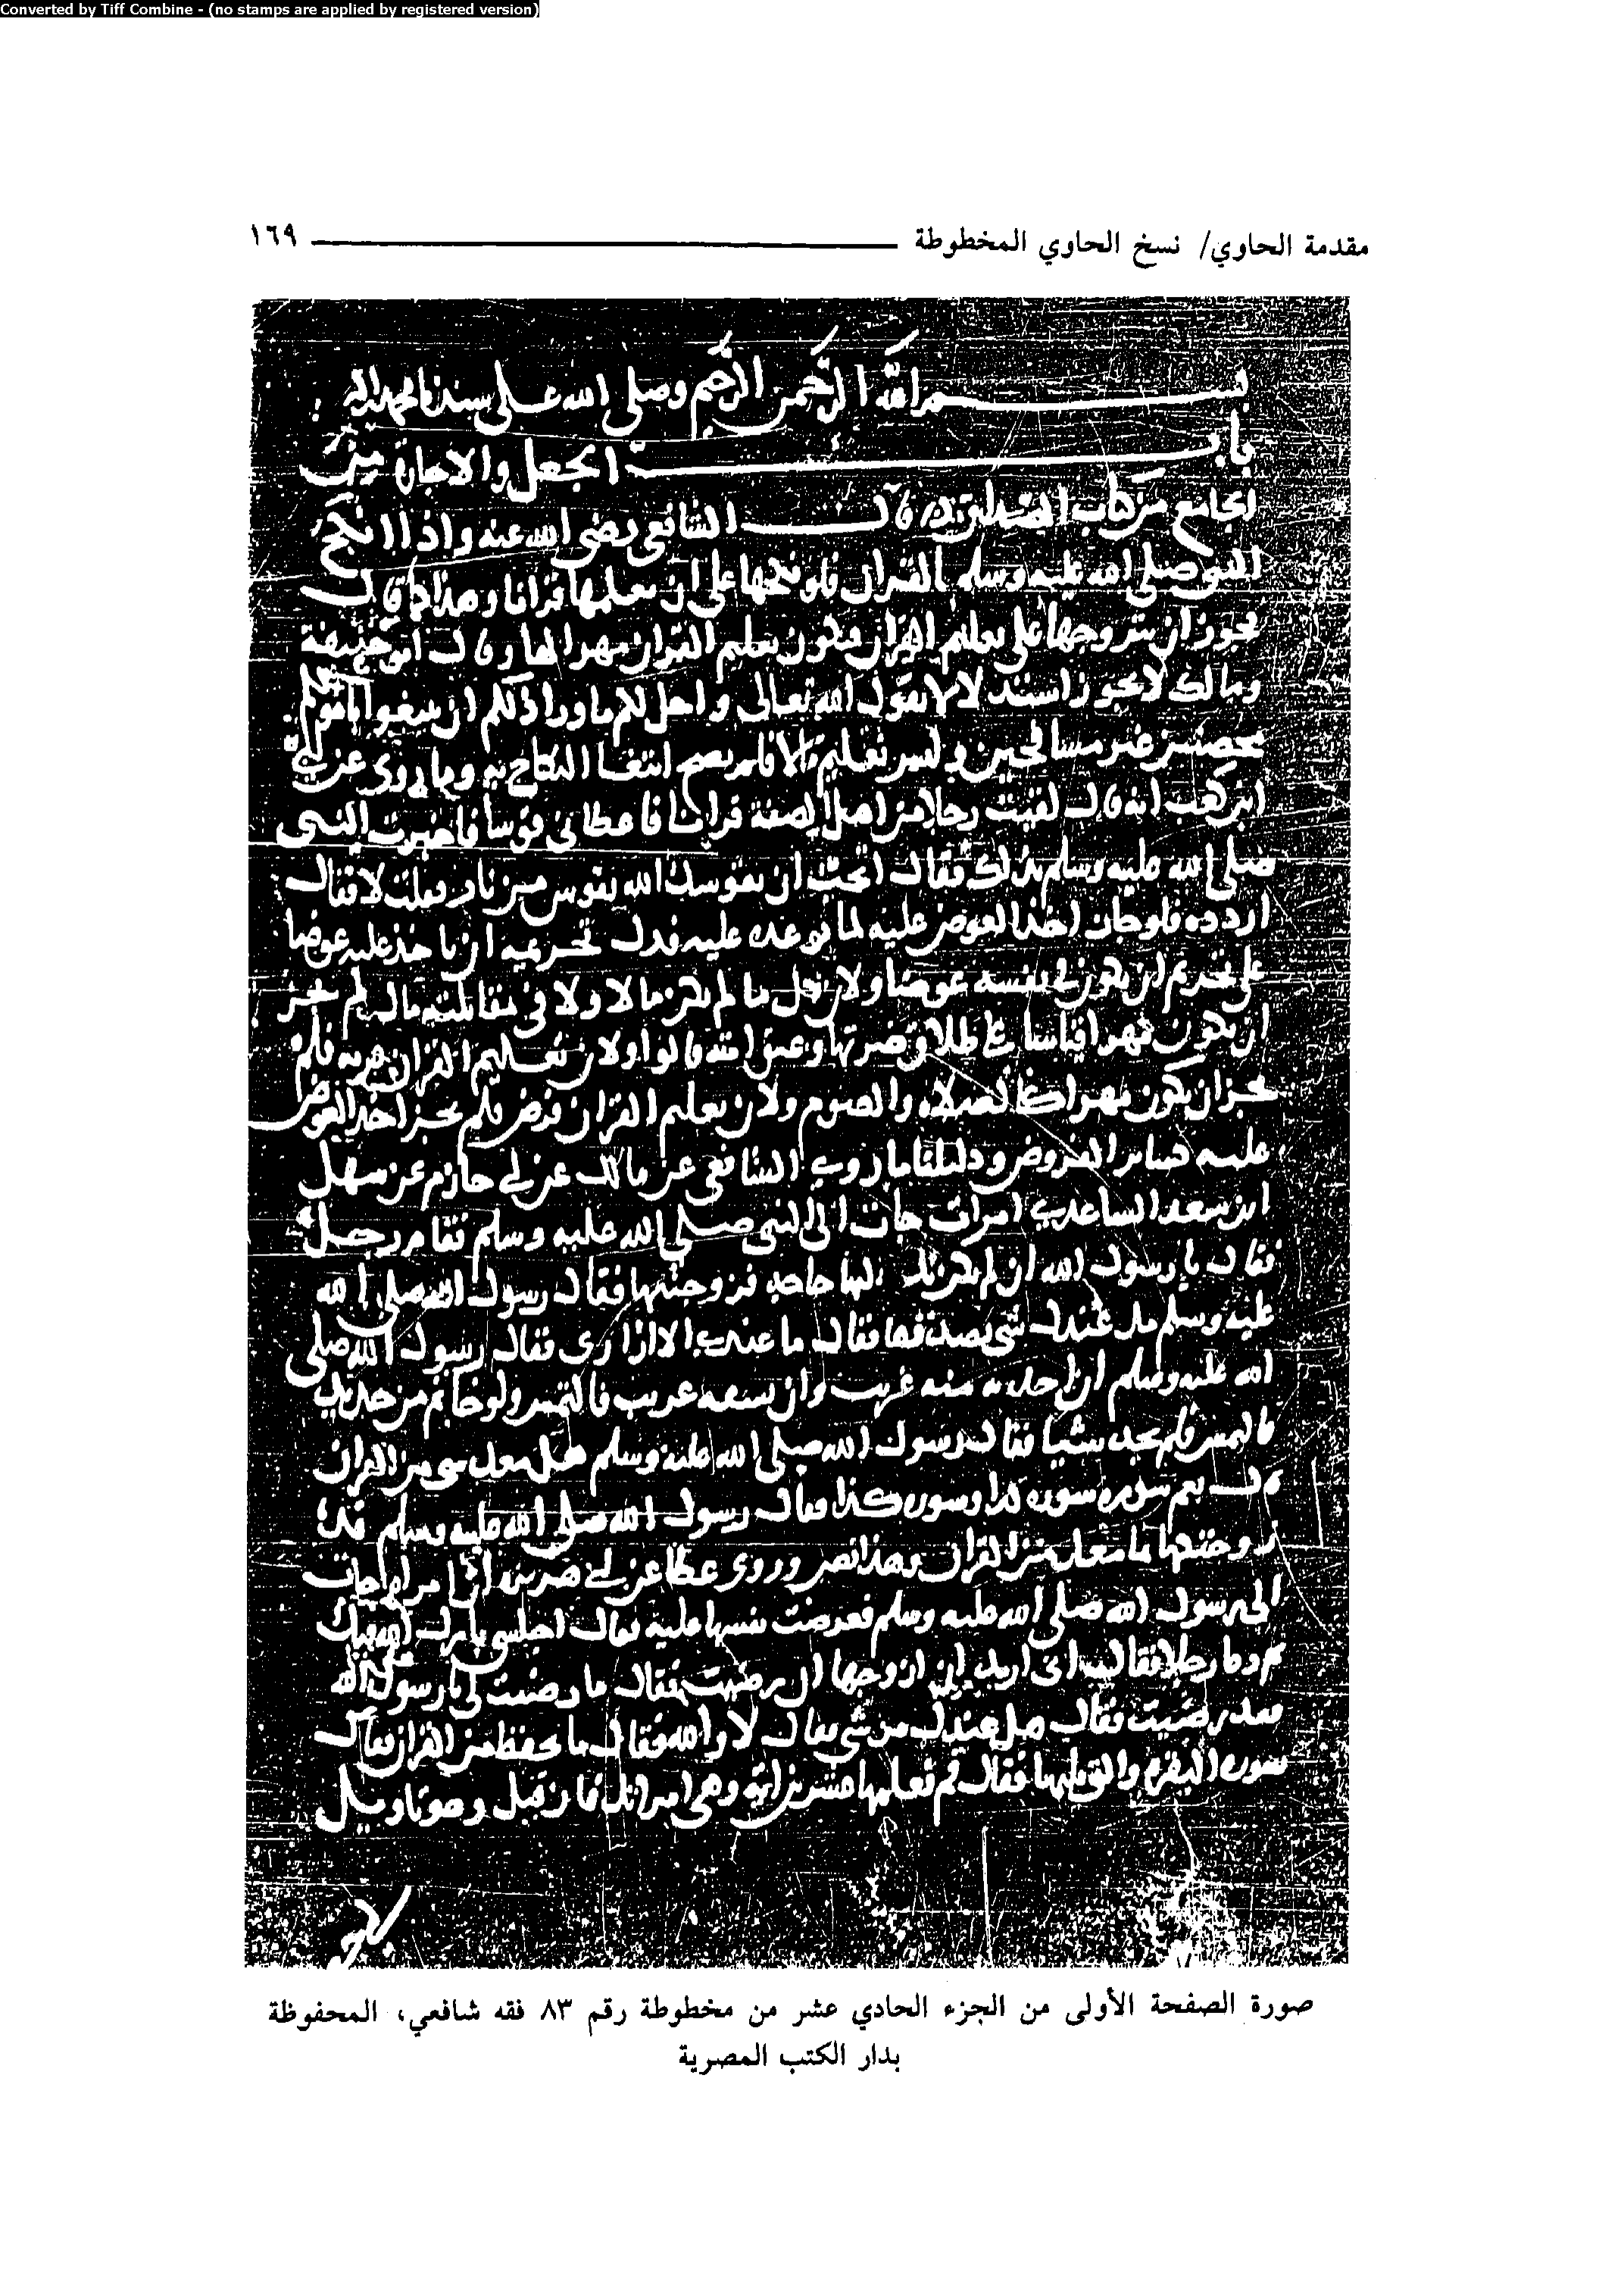 Converted by Tiff Combine - (no stamps are applied by registered version)
مقدمة الحاوي/ نسخ الحاوي المخطوطة ١٦٩
بسم الله الرحمن الرحيم وصلى الله على سيدنا محمد
باب الجعل والاجارة من
الجامع من كتاب قال الشافعي رضي الله عنه واذا انكح
صلى الله عليه وسلم بالقران فلو نكحها على ان يعلمها قرانا وهذا كما قال
يجوز ان يتزوجها على تعليم القران ويكون تعليم القران مهرا لها وقال ابو حنيفة
ومالك لا يجوز لقول الله تعالى واحل لكم ما وراذلكم ان تبتغوا باموالكم
محصنين غير مسافحين وليس تعليم القران ابتغا النكاح به وبما روي عن ابي
ابن كعب انه قال لقيت رجلا من اهل الصفة قرانا فاعطاني قوسا فاخبرت النبي
صلى الله عليه وسلم بذلك فقال اتحب ان يقوسك الله بقوس من نار فقلت لا فقال
اردده فلو جاز اخذ العوض عليه لما توعده عليه فدل تحريمه ان ياخذ عليه عوضا
على تحريم ان يكون في نفسه عوضا ولان كل ما لم يكن مالا ولا في مقابلته مال لم يجز
ان يكون مهرا قياسا على طلاق ضرتها وعتق امته قالوا ولان تعليم القران قربه فلم
يجز ان يكون مهرا كالصلاه والصوم ولان تعليم القران فرض فلم يجز اخذ العوض
عليه كساير الفروض ودليلنا ما روي الشافعي عن مالك عن ابي حازم عن سهل
ابن سعد الساعدي امراة جات الى النبي صلى الله عليه وسلم فقام رجل
فقال يا رسول الله ان لم يكن بك اليها حاجه فزوجنيها فقال رسول الله صلى الله
عليه وسلم هل عندك شي تصدقها فقال ما عندي الا ازاري فقال رسول الله صلى
الله عليه وسلم ان فالتمس ولو خاتم من حديد
فالتمس فلم يجد شيا فقال رسول الله صلى الله عليه وسلم هل معك شي من القران
قال نعم سوره كذا وسوره كذا فقال رسول الله صلى الله عليه وسلم قد
زوجتكها بما معك من القران وهذا نص وروى عطا عن ابي هريره ان امراه جات
الى رسول الله صلى الله عليه وسلم فعرضت نفسها عليه فقال اجلسي بارك الله فيك
ثم دعا رجلا فقال اني اريد ان ازوجها ان رضيت فقال ما رضيت لي يا رسول الله
فقد رضيت فقال هل عندك من شي فقال لا والله فقال ما تحفظ من القران فقال
سوره البقره والتي تليها فقال قم فعلمها عشرين ايه وهي امراتك فان قيل وهو تاويل
صورة الصفحة الأولى من الجزء الحادي عشر من مخطوطة رقم ٨٣ فقه شافعي، المحفوظة
بدار الكتب المصرية